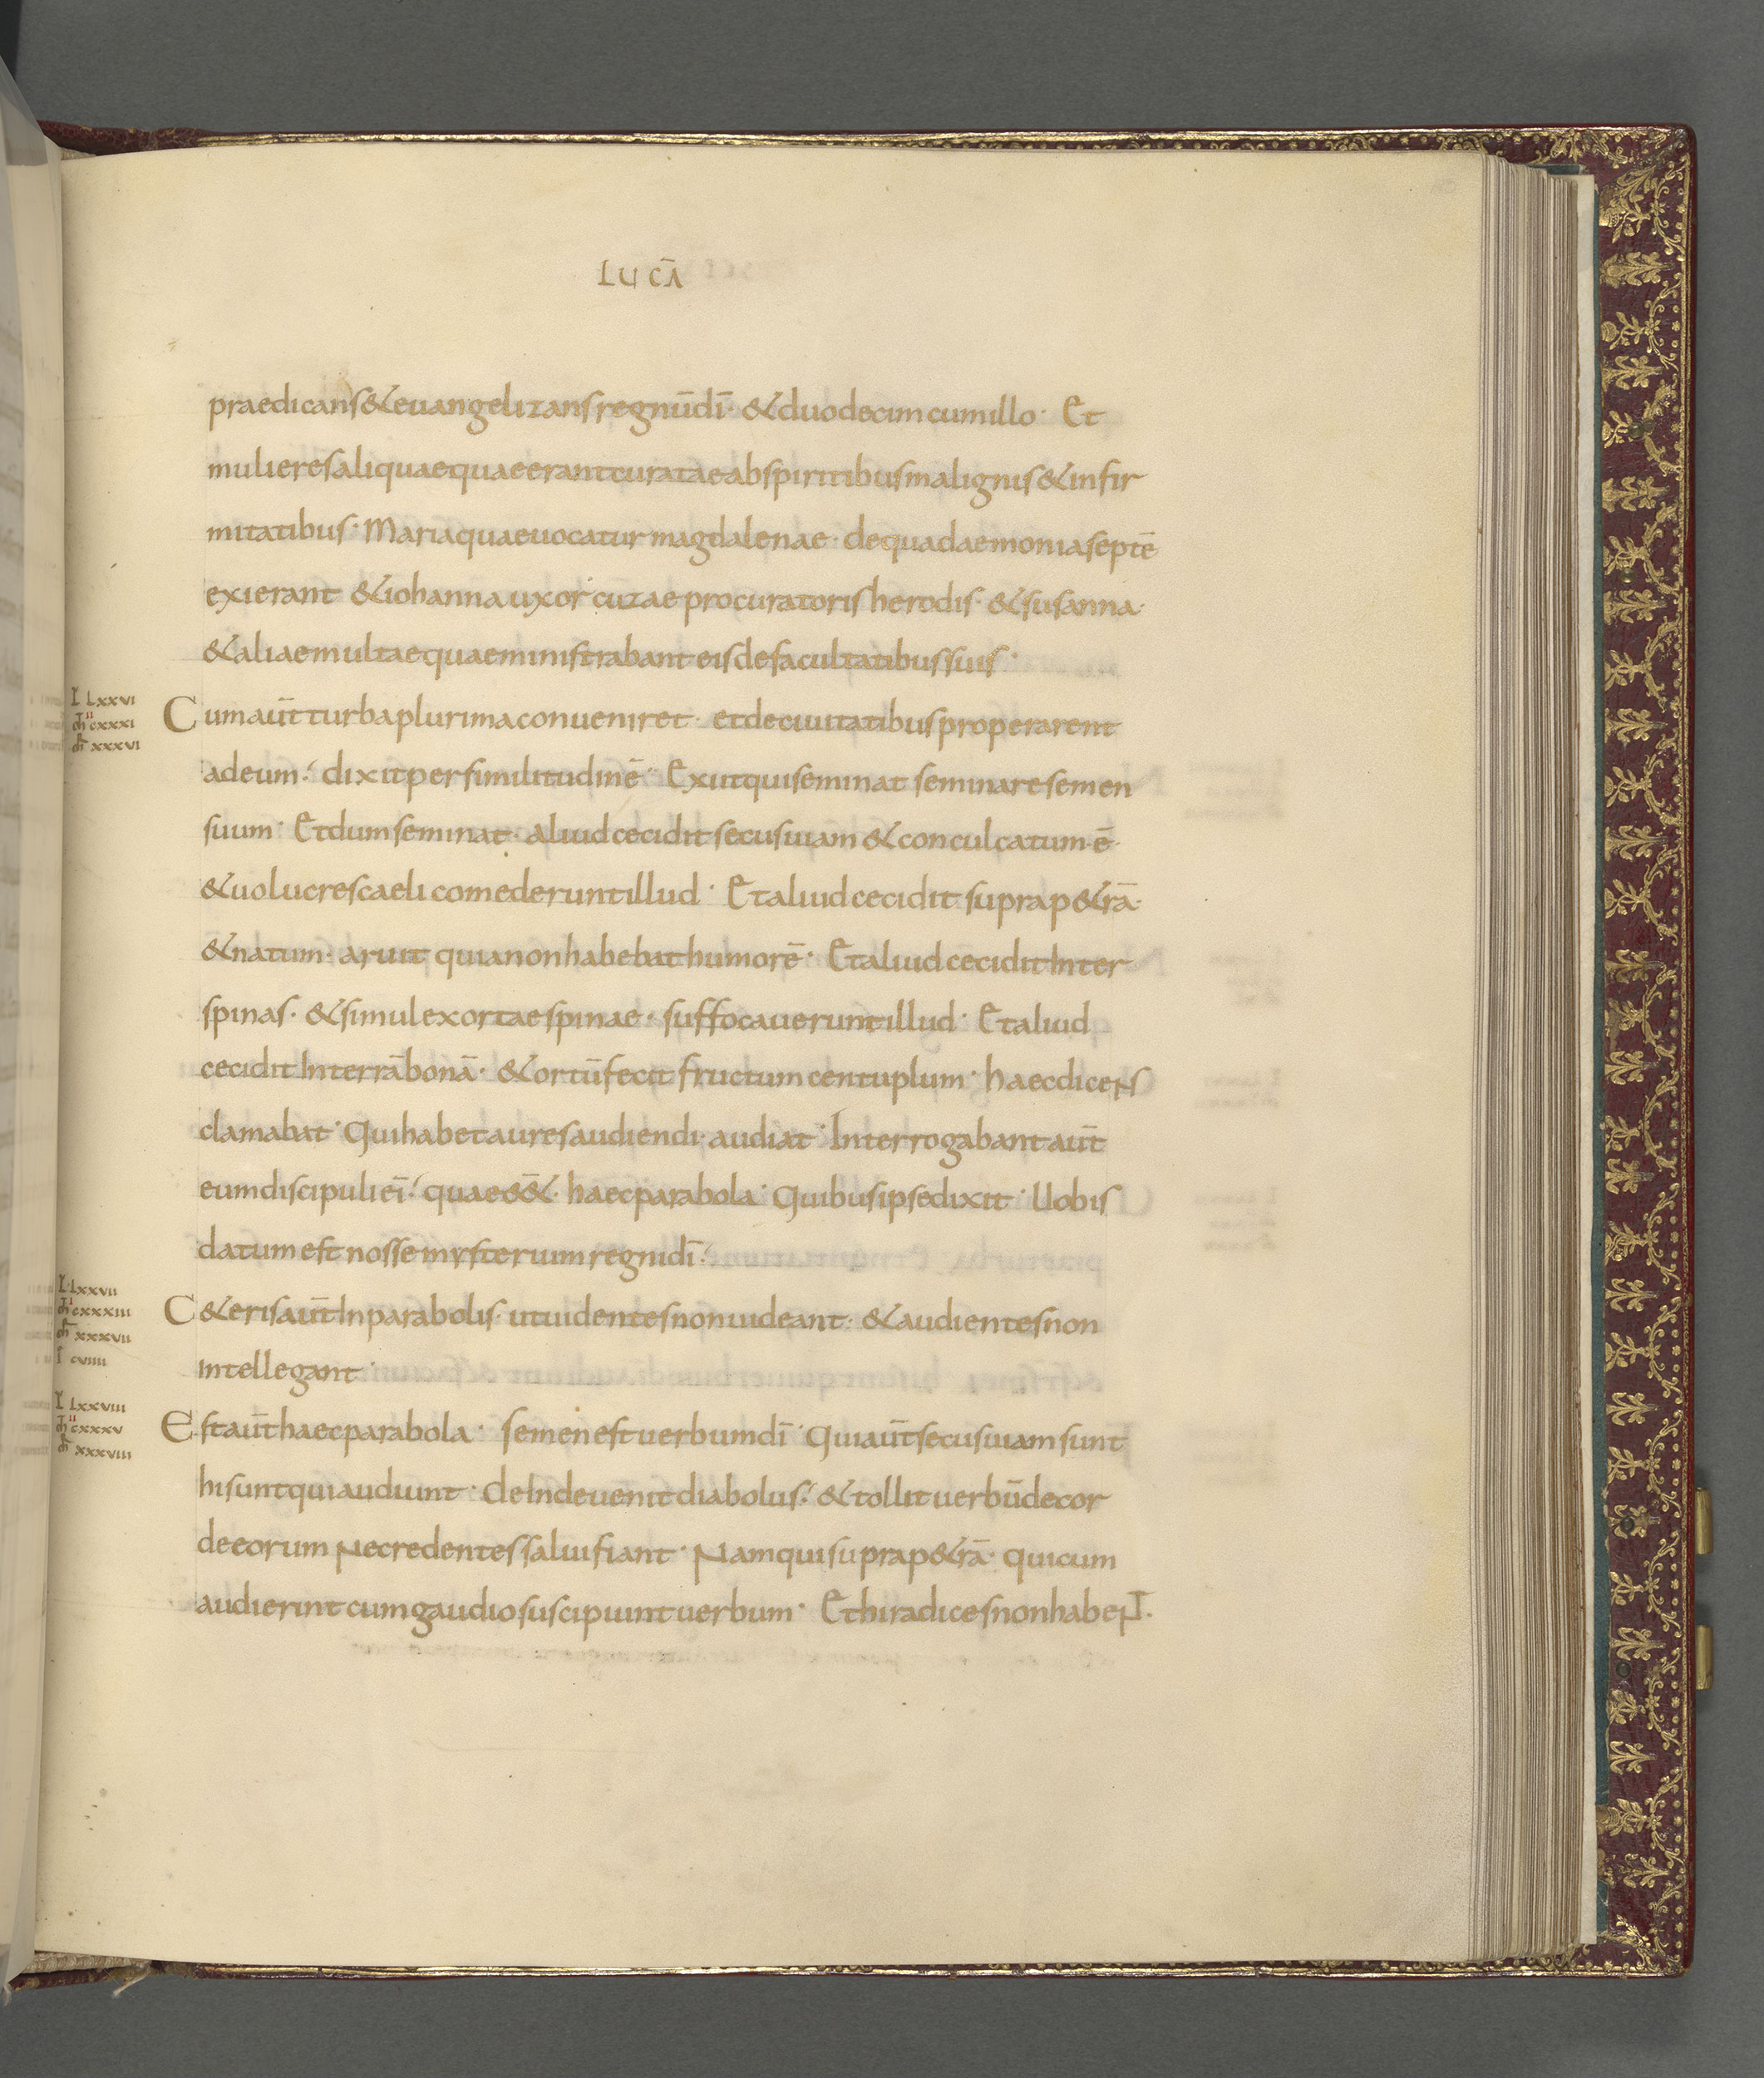 LUCĀ
praedicans & euangelizans regnū dī · & duodecim cum illo · Et
mulieres aliquae quae erant curatae ab spiritibus malignis & infir
mitatibus · Maria quae uocatur magdalenae · de qua daemonia septē
exierant & iohanna uxor cuzae procuratoris herodis · & susanna ·
& aliae multae quae ministrabant eis de facultatibus suis ·
LXXVI
CXXXI
XXXVI
Cum aūt turba plurima conueniret · et de ciuitatibus properarent
ad eum · dixit per similitudinē · Exiit qui seminat seminare semen
suum · Et dum seminat · aliud cecidit secus uiam & conculcatum ē ·
& uolucres caeli comederunt illud · Et aliud cecidit supra p&rā ·
& natum · aruit quia non habebat humorē · Et aliud cecidit Inter
spinas · & simul exortae spinae · suffocauerunt illud · Et aliud
cecidit In terrā bonā · & ortū fecit fructum centuplum · haec diceNS
clamabat · Qui habet aures audiendi · audiat · Interrogabant aūt
eum discipuli eī · quae ēē& haec parabola · Quibus ipse dixit · Uobis
datum est nosse mysterium regni dī ·
LXXVII
CXXXIII
XXXVII
CVIIII
C&eris aūt In parabolis · ut uidentes non uideant · & audientes non
Intellegant ·
LXXVIII
CXXXV
XXXVIII
Est aūt haec parabola · semen est uerbum dī · Qui aūt secus uiam sunt
hi sunt qui audiunt · deInde uenit diabolus · & tollit uerbū de cor
de eorum Ne credentes salui fiant · Nam qui supra p&rā · qui cum
audierint cum gaudio suscipiunt uerbum · Et hi radices non habeNT ·